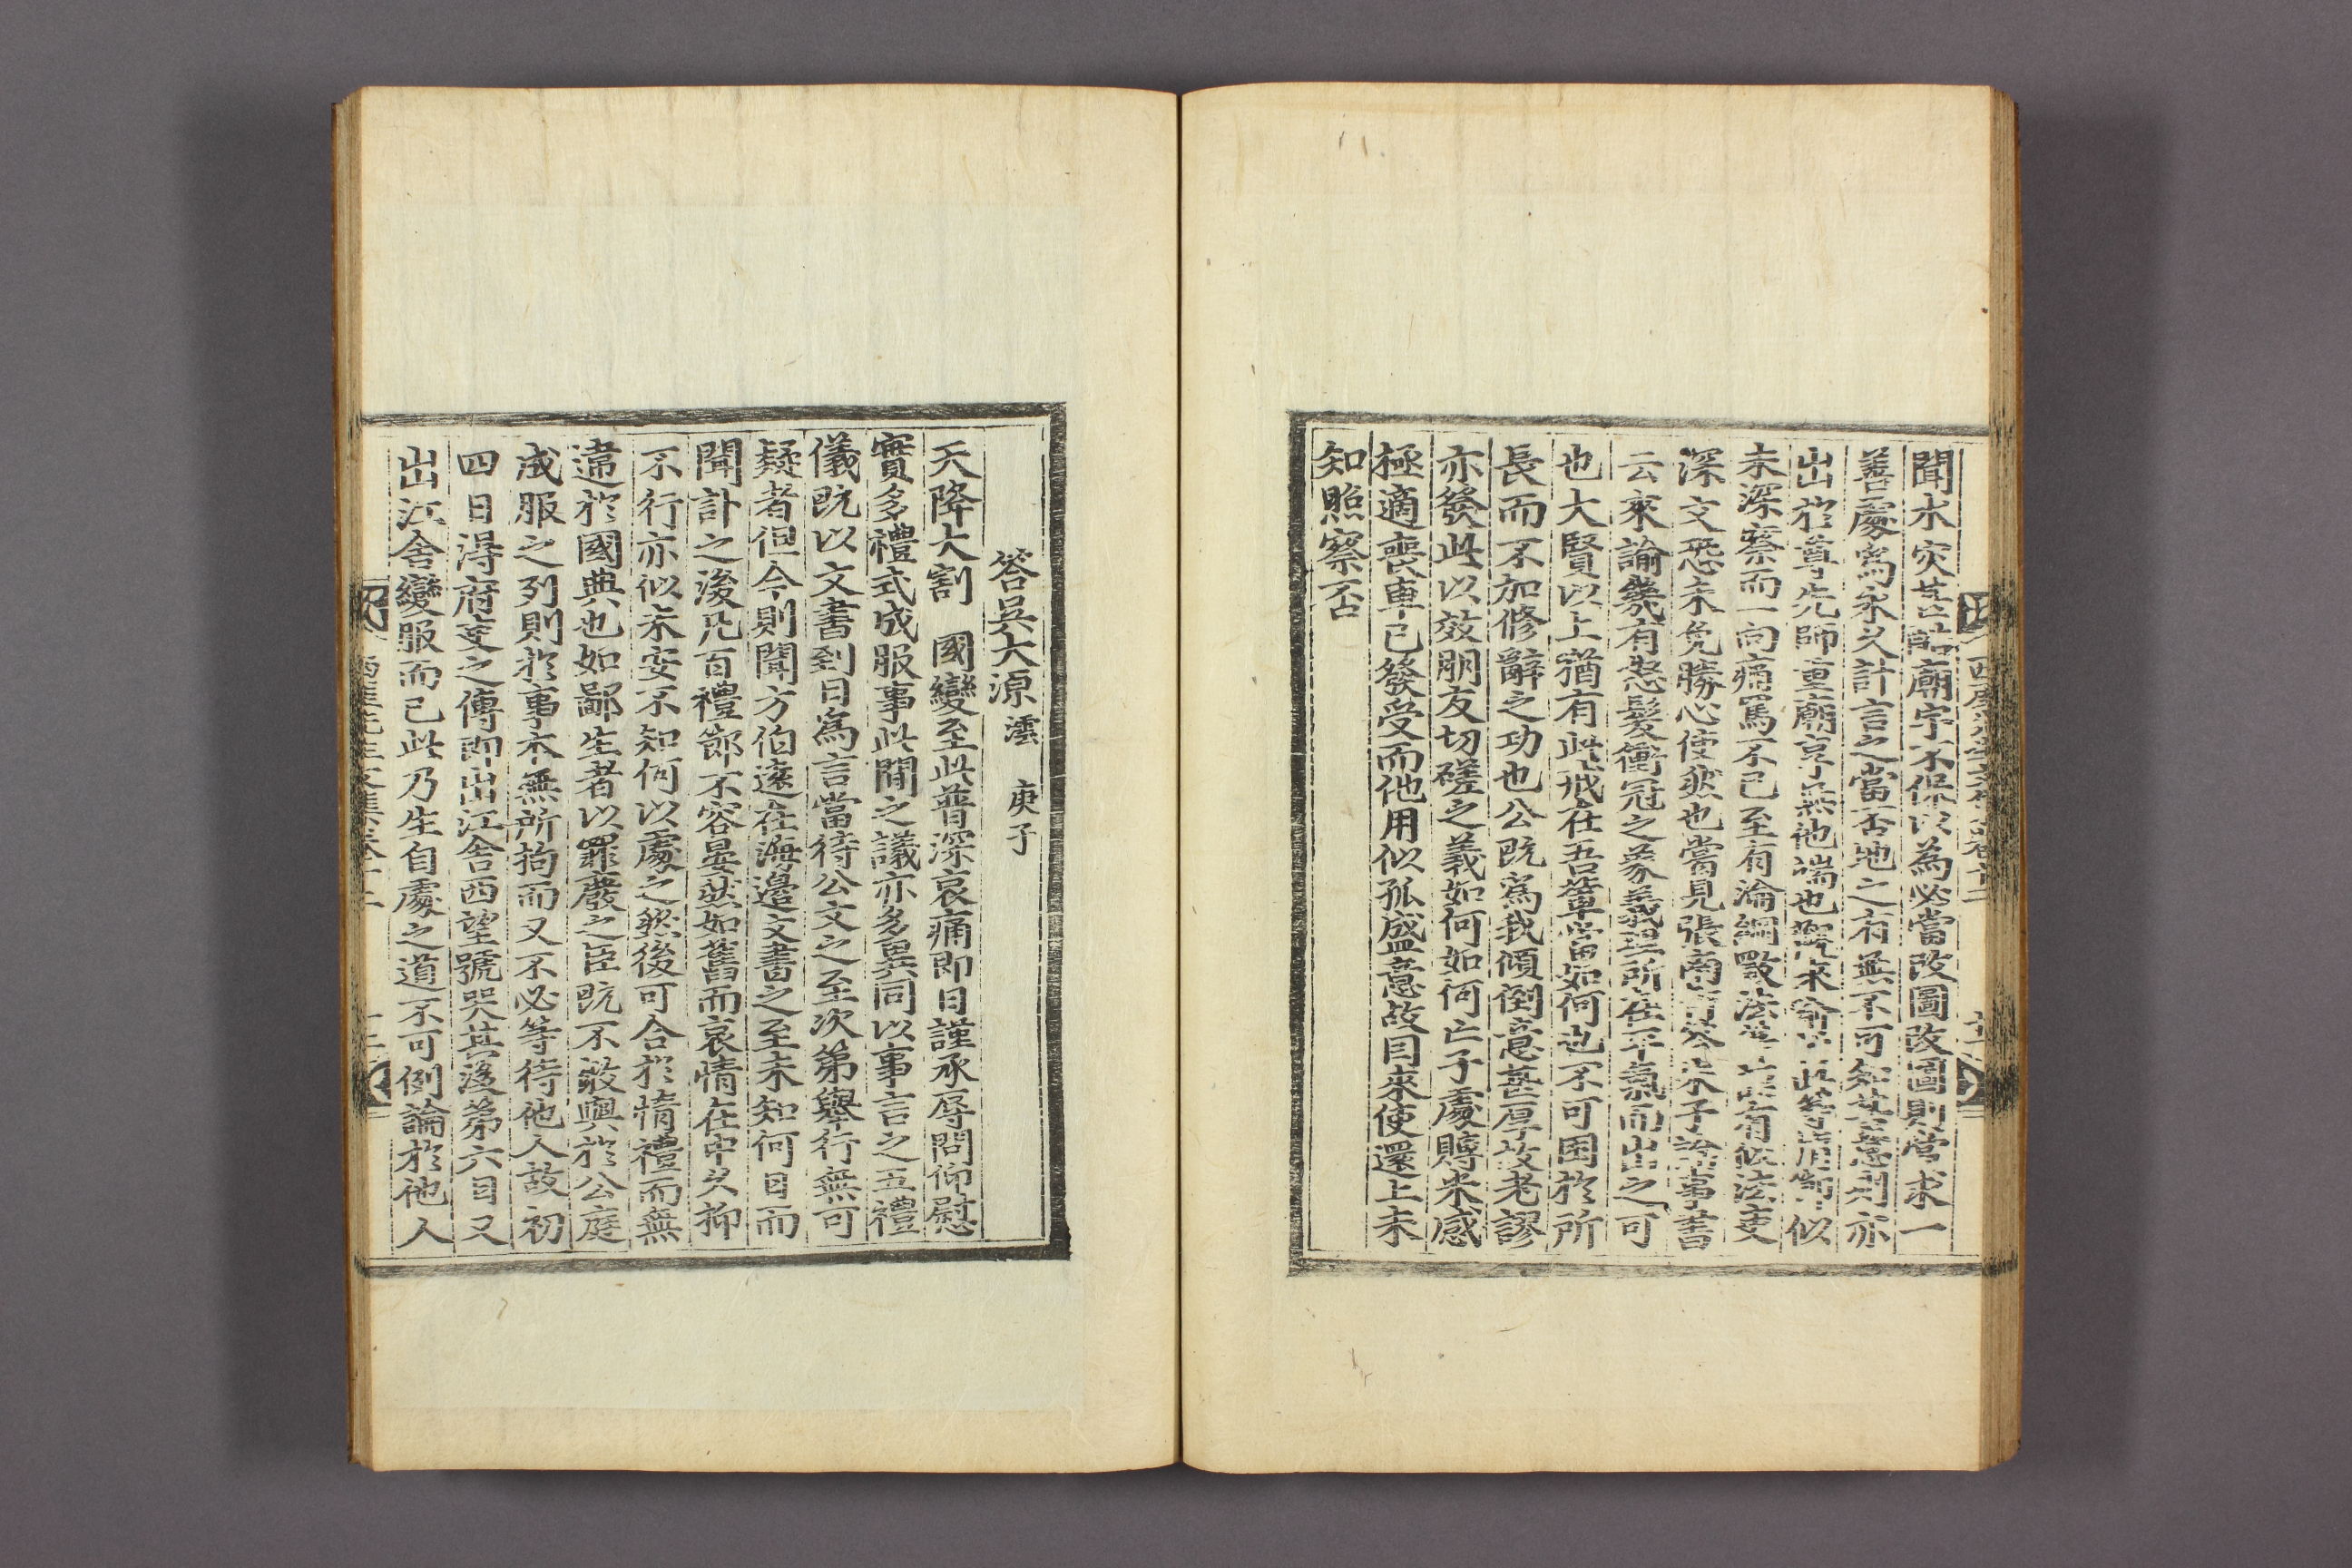 聞水灾甚酷廟宇不保以為必當改圖改圖則當求一
善處爲永久計言之當否地之有無不可知其意則亦
出於尊先師重廟享無他端也來諭以此等爲似
未深察而一向痛罵不已至有淪綱斁法等有似法吏
深文恐未免勝心使然也嘗見張南軒答朱子論事書
云來諭幾有怒髮衝冠之象義理所在平氣而出之可
也大賢以上猶有此戒在吾輩當如何也不可困於所
長而不加修辭之功也公既爲我傾倒意甚厚故老謬
亦發此以效朋友切磋之義如何如何亡子處賻米感
極適喪車已發受而他用似孤盛意故因來使還上未
知照察否
答吳大源澐 庚子
天降大割 國變至此普深哀痛即日謹承辱問仰慰
實多禮式成服事此間之議亦多異同以事言之五禮
儀既以文書到日爲言當待公文之至次第舉行無可
疑者但今則聞方伯遠在海邊文書之至未知何日而
聞訃之後凡百禮節不容晏然如舊而哀情在中久抑
不行亦似未安不知何以處之然後可合於情禮而無
違於國典也如鄙生者以罪廢之臣既不敢與於公庭
成服之列則於事本無所拘而又不必等待他人故初
四日得府吏之傳即出江舍西望號哭其後第六日又
出江舍變服而已此乃生自處之道不可例論於他人